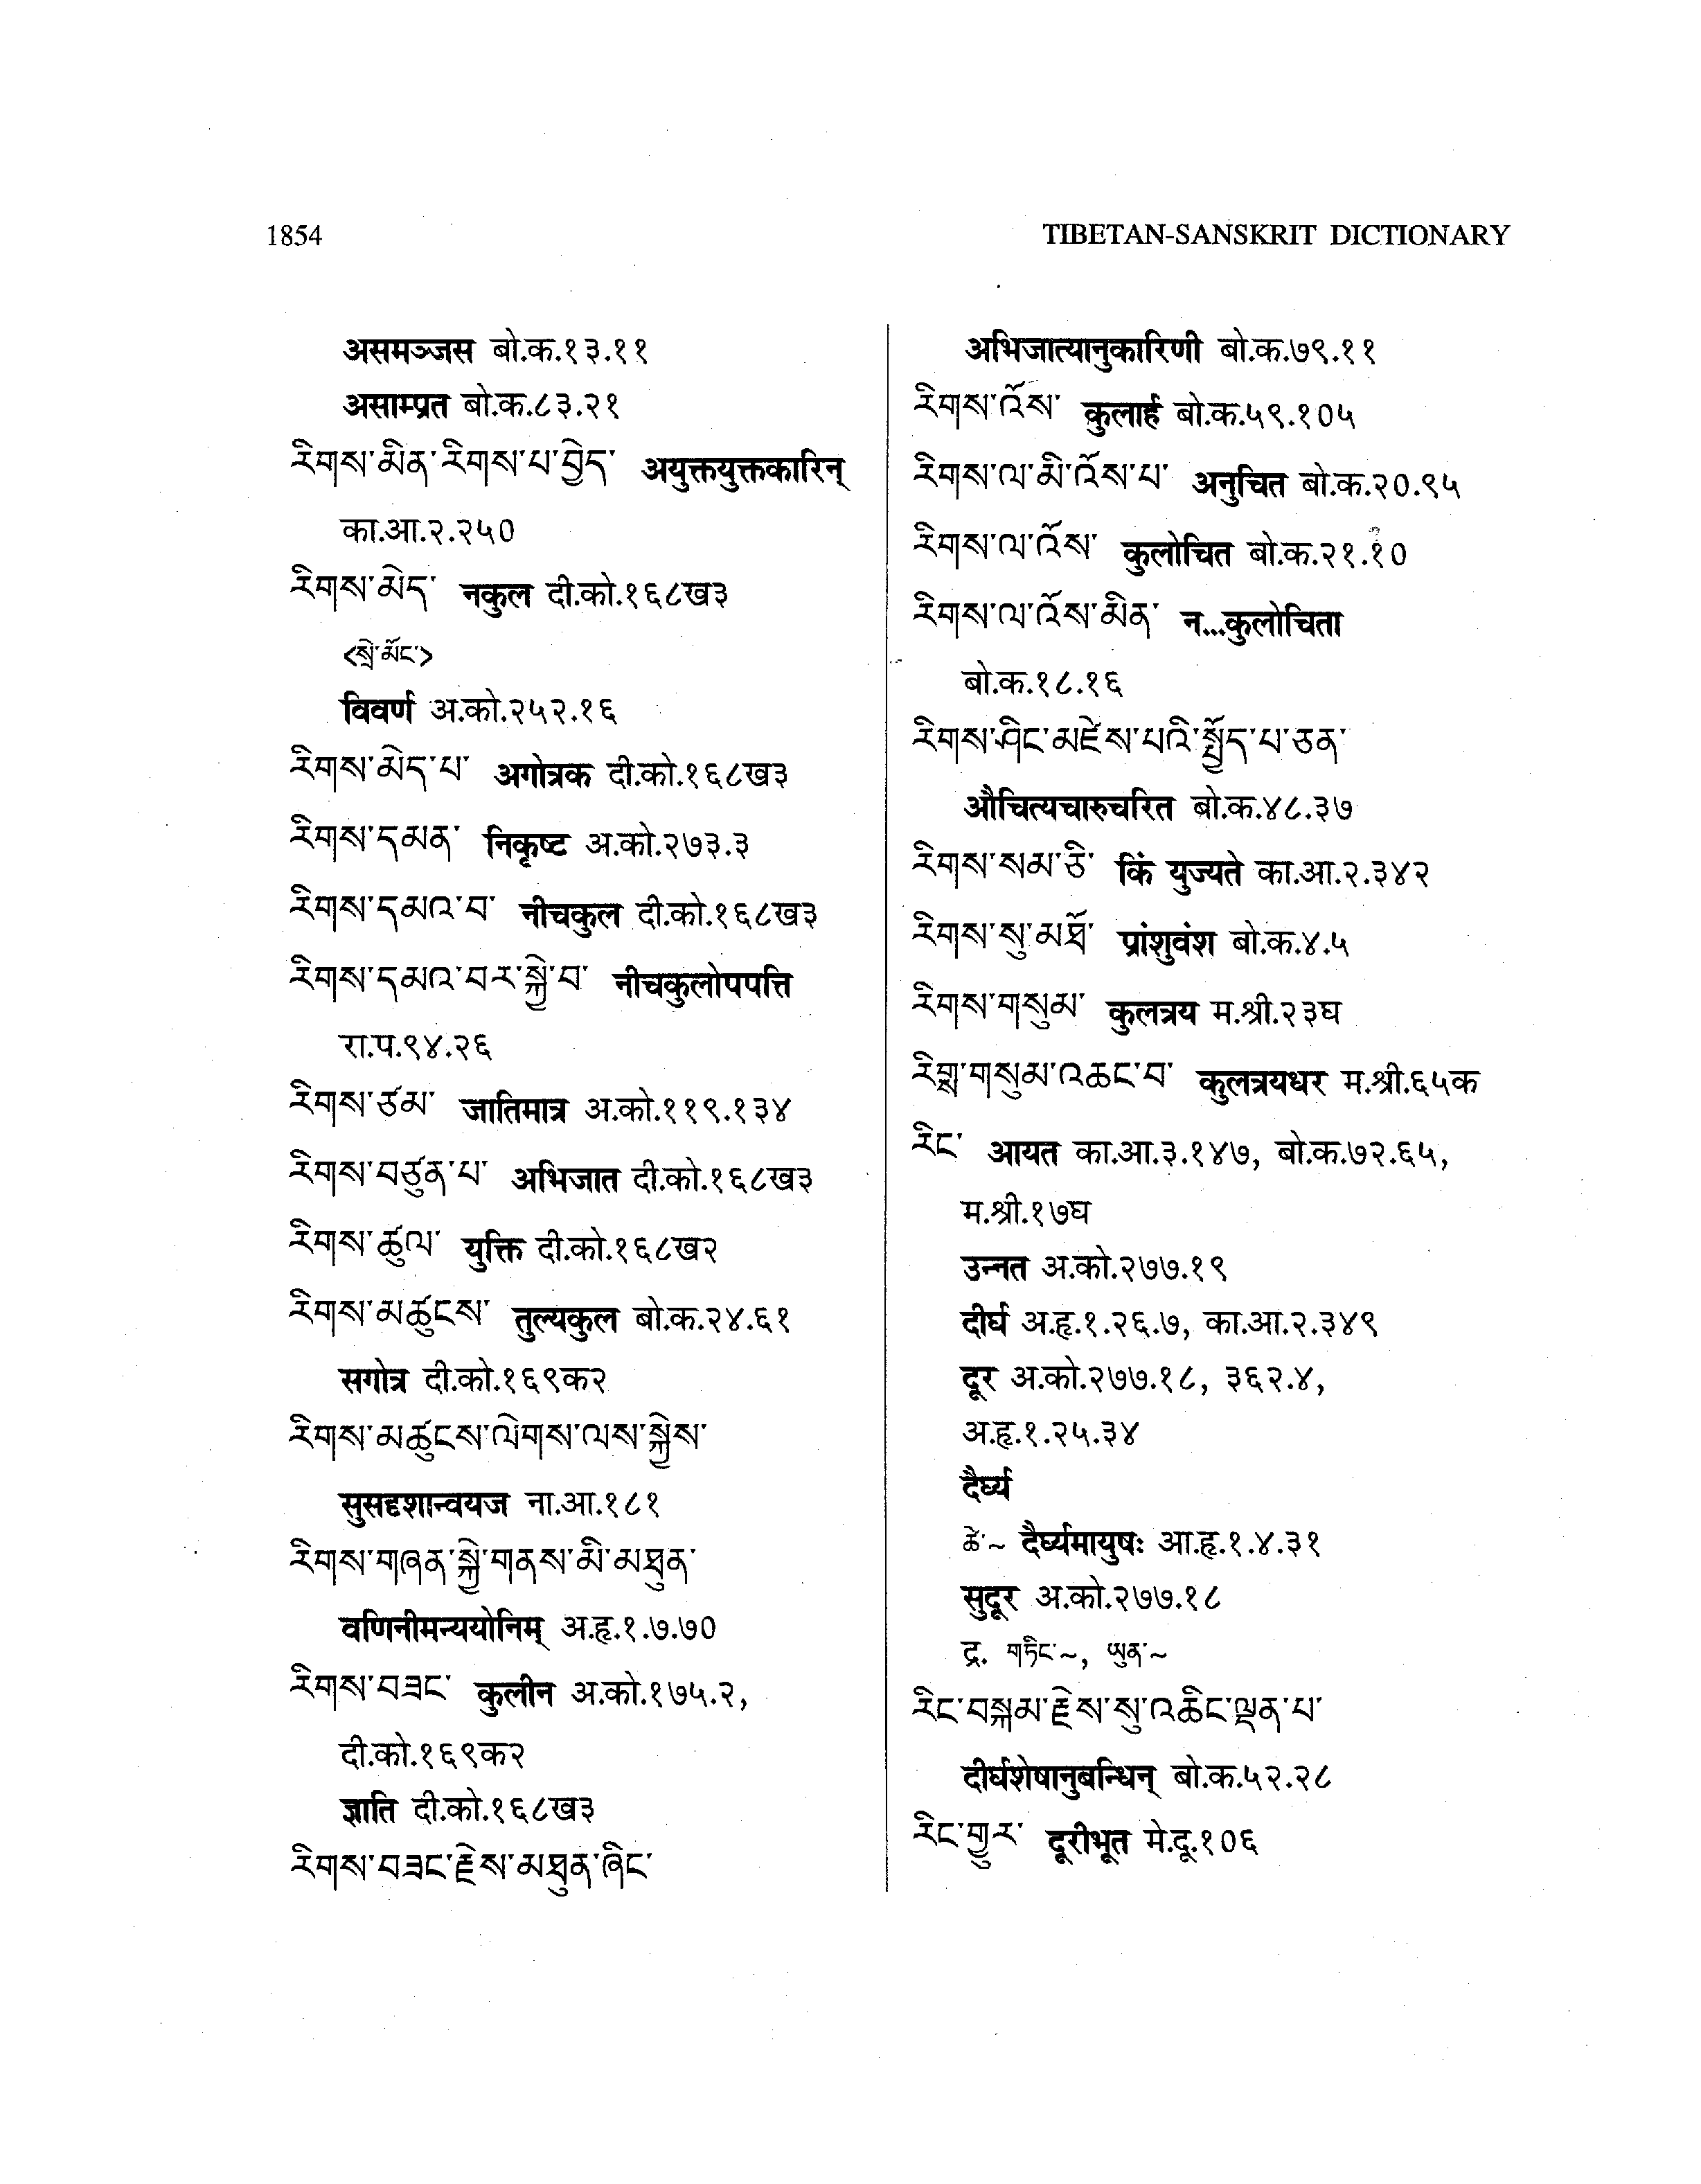 1854
TIBETAN-SANSKRIT DICTIONARY
असमञ्जस बो.क.१३.११
असाम्प्रत बो.क.८३.२१
རིགས་མིན་རིགས་པ་བྱེད་ अयुक्तयुक्तकारिन्
का.आ.२.२५0
རིགས་མེད་ नकुल दी.को.१६८ख३
<སྲེ་མོང་>
विवर्ण अ.को.२५२.१६
རིགས་མེད་པ་ अगोत्रक दी.को.१६८ख३
རིགས་དམན་ निकृष्ट अ.को.२७३.३
རིགས་དམའ་བ་ नीचकुल दी.को.१६८ख३
རིགས་དམའ་བར་སྐྱེ་བ་ नीचकुलोपपत्ति
रा.प.९४.२६
རིགས་ཙམ་ जातिमात्र अ.को.११९.१३४
རིགས་བཙུན་པ་ अभिजात दी.को.१६८ख३
རིགས་ཚུལ་ युक्ति दी.को.१६८ख२
རིགས་མཚུངས་ तुल्यकुल बो.क.२४.६१
सगोत्र दी.को.१६९क२
རིགས་མཚུངས་ལེགས་ལས་སྐྱེས་
सुसदृशान्वयज ना.आ.१८१
རིགས་གཞན་སྐྱེ་གནས་མི་མཐུན་
वणिनीमन्ययोनिम् अ.हृ.१.७.७0
རིགས་བཟང་ कुलीन अ.को.१७५.२,
दी.को.१६९क२
ज्ञाति दी.को.१६८ख३
རིགས་བཟང་རྗེས་མཐུན་ཞིང་
अभिजात्यानुकारिणी बो.क.७९.११
རིགས་འོས་ कुलार्ह बो.क.५९.१0५
རིགས་ལ་མི་འོས་པ་ अनुचित बो.क.२0.९५
རིགས་ལ་འོས་ कुलोचित बो.क.२१.१0
རིགས་ལ་འོས་མིན་ न...कुलोचिता
बो.क.१८.१६
རིགས་ཤིང་མཛེས་པའི་སྤྱོད་པ་ཅན་
औचित्यचारुचरित बो.क.४८.३७
རིགས་སམ་ཅི་ किं युज्यते का.आ.२.३४२
རིགས་སུ་མཐོ་ प्रांशुवंश बो.क.४.५
རིགས་གསུམ་ कुलत्रय म.श्री.२३घ
རིགྶ་གསུམ་འཆང་བ་ कुलत्रयधर म.श्री.६५क
རིང་ आयत का.आ.३.१४७, बो.क.७२.६५,
म.श्री.१७घ
उन्नत अ.को.२७७.१९
दीर्घ अ.हृ.१.२६.७, का.आ.२.३४९
दूर अ.को.२७७.१८, ३६२.४,
अ.हृ.१.२५.३४
दैर्घ्य
ཚེ་~ दैर्घ्यमायुषः आ.हृ.१.४.३१
सुदूर अ.को.२७७.१८
द्र. གཏིང་~, ཡུན་~
རིང་བསྐམ་རྗེས་སུ་འཆིང་ལྡན་པ་
दीर्घशेषानुबन्धिन् बो.क.५२.२८
རིང་གྱུར་ दूरीभूत मे.दू.१0६